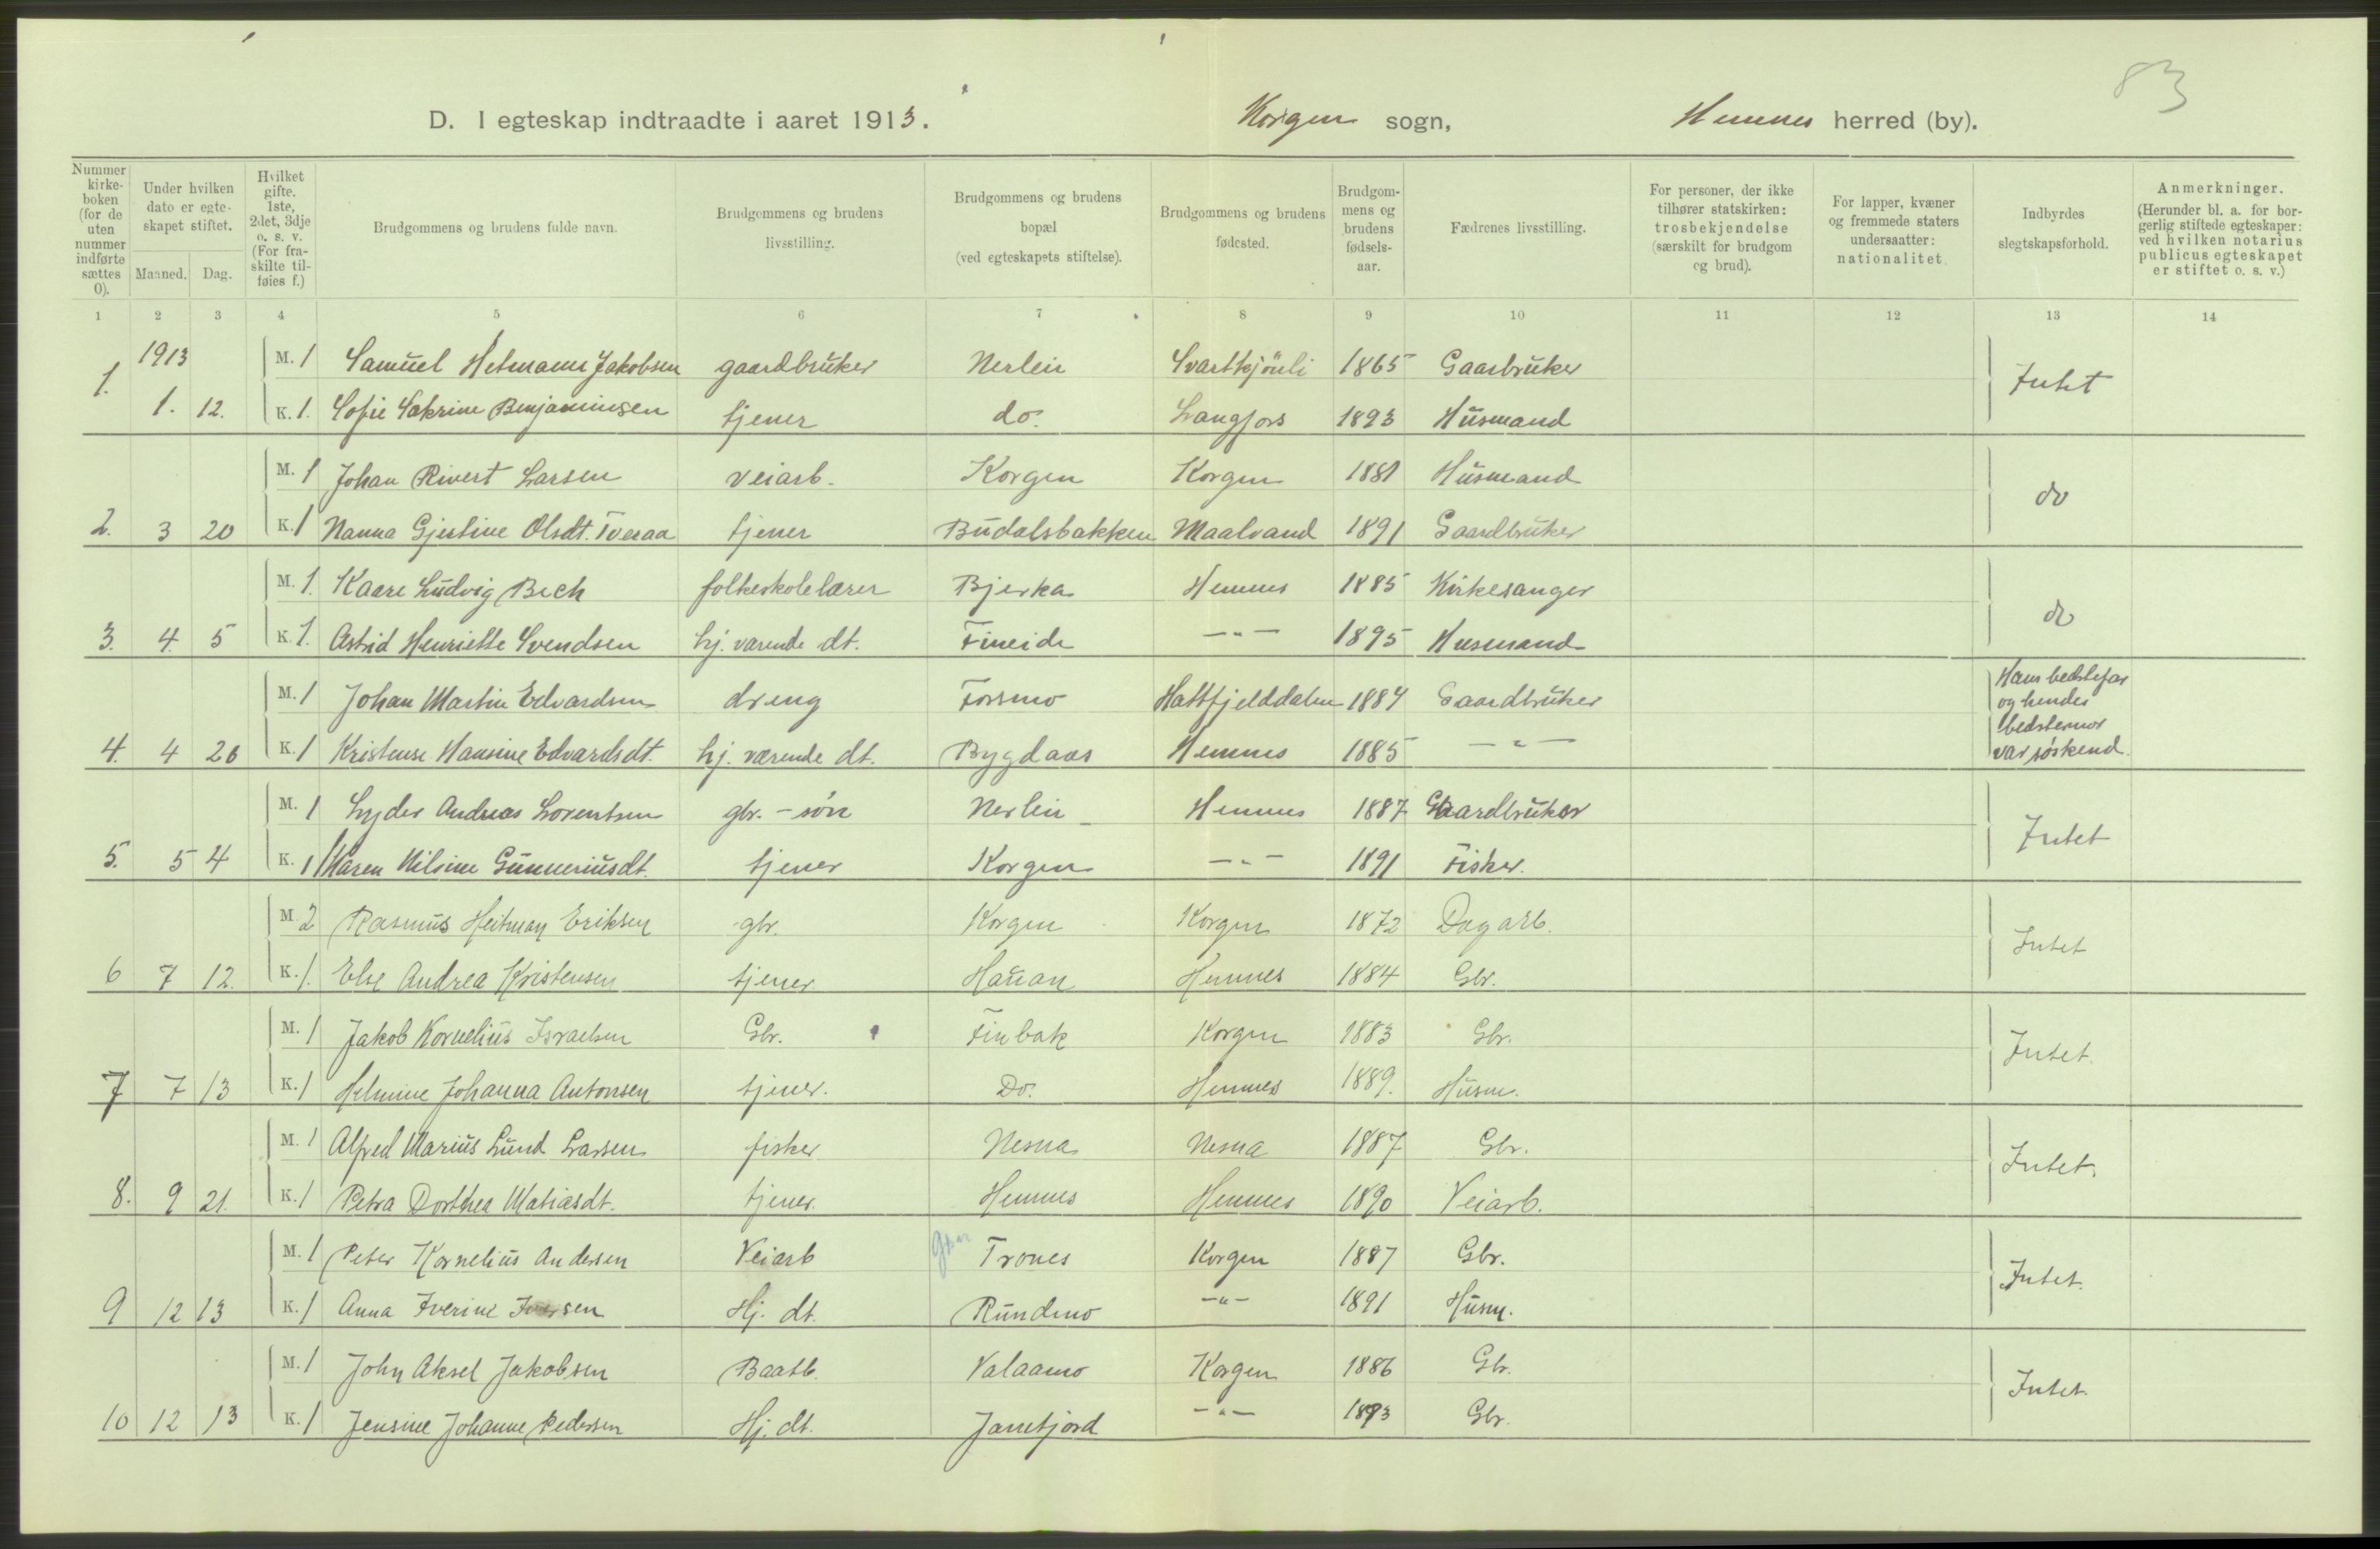 83
D. I egteskap indtraadte i aaret 1913. Korgen sogn, Hemnes herred (by).
Nummer kirke-boken (for de uten nummer indførte sættes 0). Under hvilken dato er egte-skapet stiftet. Maaned. Dag. Hvilket gifte. 1ste, 2det, 3dje o. s. v. (For fra-skilte til-føies f.) Brudgommens og brudens fulde navn. Brudgommens og brudens livsstilling. Brudgommens og brudens bopæl (ved egteskapets stiftelse). Brudgommens og brudens fødested. Brudgom-mens og brudens fødsels-aar. Fædrenes livsstilling. For personer, der ikke tilhører statskirken: trosbekjendelse (særskilt for brudgom og brud). For lapper, kvæner og fremmede staters undersaatter: nationalitet. Indbyrdes slegtskapsforhold. Anmerkninger. (Herunder bl. a. for bor-gerlig stiftede egteskaper: ved hvilken notarius publicus egteskapet er stiftet o. s. v.)
1 2 3 4 5 6 7 8 9 10 11 12 13 14
1913 M. 1 Samuel Hetmann Jakobsen gaardbruker Nerlein Svarttjönli 1865 Gaarbruker Intet
1. 1. 12. K. 1. Sofie Sakrine Benjaminsen tjener do. Langfors 1893 Husmand
M. 1 Johan Rivert Larsen veiarb. Korgen Korgen 1881 Husmand do
2. 3 20 K. 1 Nanna Gjertine Olsdt. Tveraa tjener Budalsbakken Maalvand 1891 Gaardbruker
M. 1. Kaare Ludvig Bech folkeskolelærer Bjerka Hemnes 1885 Kirkesanger do
3. 4. 5 K. 1. Astrid Henriette Svendsen hj. værende dt. Fineide —„— 1895 Husmand
M. 1 Johan Martin Edvardsen dreng Forsmo Hattfjelddalen 1884 Gaardbruker Hans bedstefar og hendes bedstemor var søskend.
4. 4 26 K. 1 Kristense Hansine Edvardsdt. hj. værende dt. Bygdaas Hemnes 1885 —„—
M. 1 Lyder Andreas Lorentsen gbr. - søn Nerlein Hemnes 1887 Gaardbruker Intet
5. 5 4 K. 1 Maren Nilsine Gunneriusdt. tjener Korgen —„— 1891 Fisker.
M. 2 Rasmus Heitman Eriksen gbr. Korgen Korgen 1872 Dagarb. Intet
6 7 12. K. 1. Else Andrea Kristensen tjener Hauan Hemnes 1884 Gbr.
M. 1 Jakob Kornelius Israelsen Gbr. Finbak Korgen 1883 Gbr. Intet.
7 7 13 K. 1 Helmine Johanna Antonsen tjener. Do. Hemnes 1889. Husm.
M. 1 Alfred Marius Lund Larsen fisker Nesna Nesna 1887 Gbr. Intet.
8. 9 21. K. 1 Petra Dorthea Matiasdt. tjener. Hemnes Hemnes 1890 Veiarb.
M. 1 Peter Kornelius Andersen Veiarb Trones Korgen 1887 Gbr. Intet.
9 12 13 K. 1 Anna Iverine Iversen Hj. dt. Rundmo —„— 1891 Husm.
M. 1 John Aksel Jakobsen Baatb. Valaamo Korgen 1886 Gb. Intet.
10 12 13 K. 1 Jensine Johanne Pedersen Hj. dt. Jamtjord —„— 1893 Gbr.